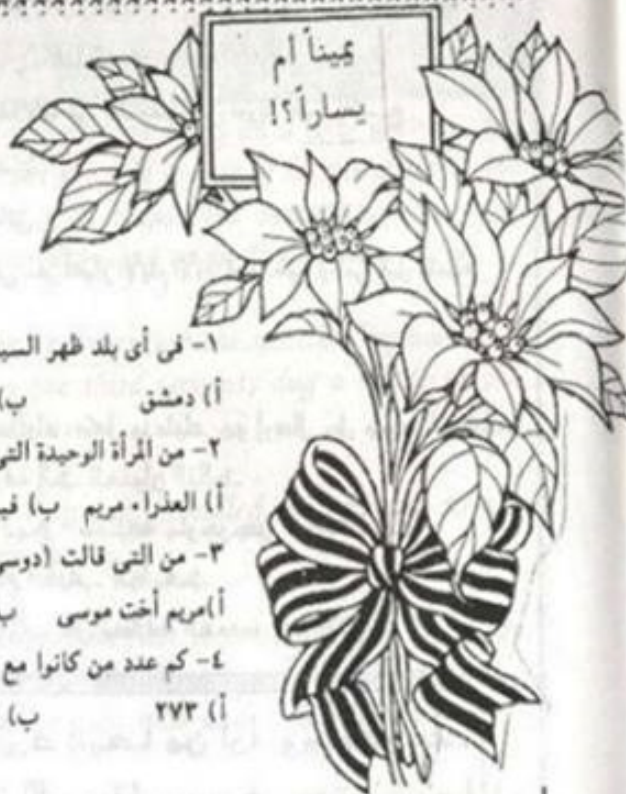 يميناً أم
يساراً؟!
١- فى أى بلد ظهر السي
أ) دمشق ب)
٢- من المرأة الوحيدة التى
أ) العذراء مريم ب) في
٣- من التى قالت (دوسى
أ)مريم أخت موسى ب
٤- كم عدد من كانوا مع
أ) ٢٧٣ ب)